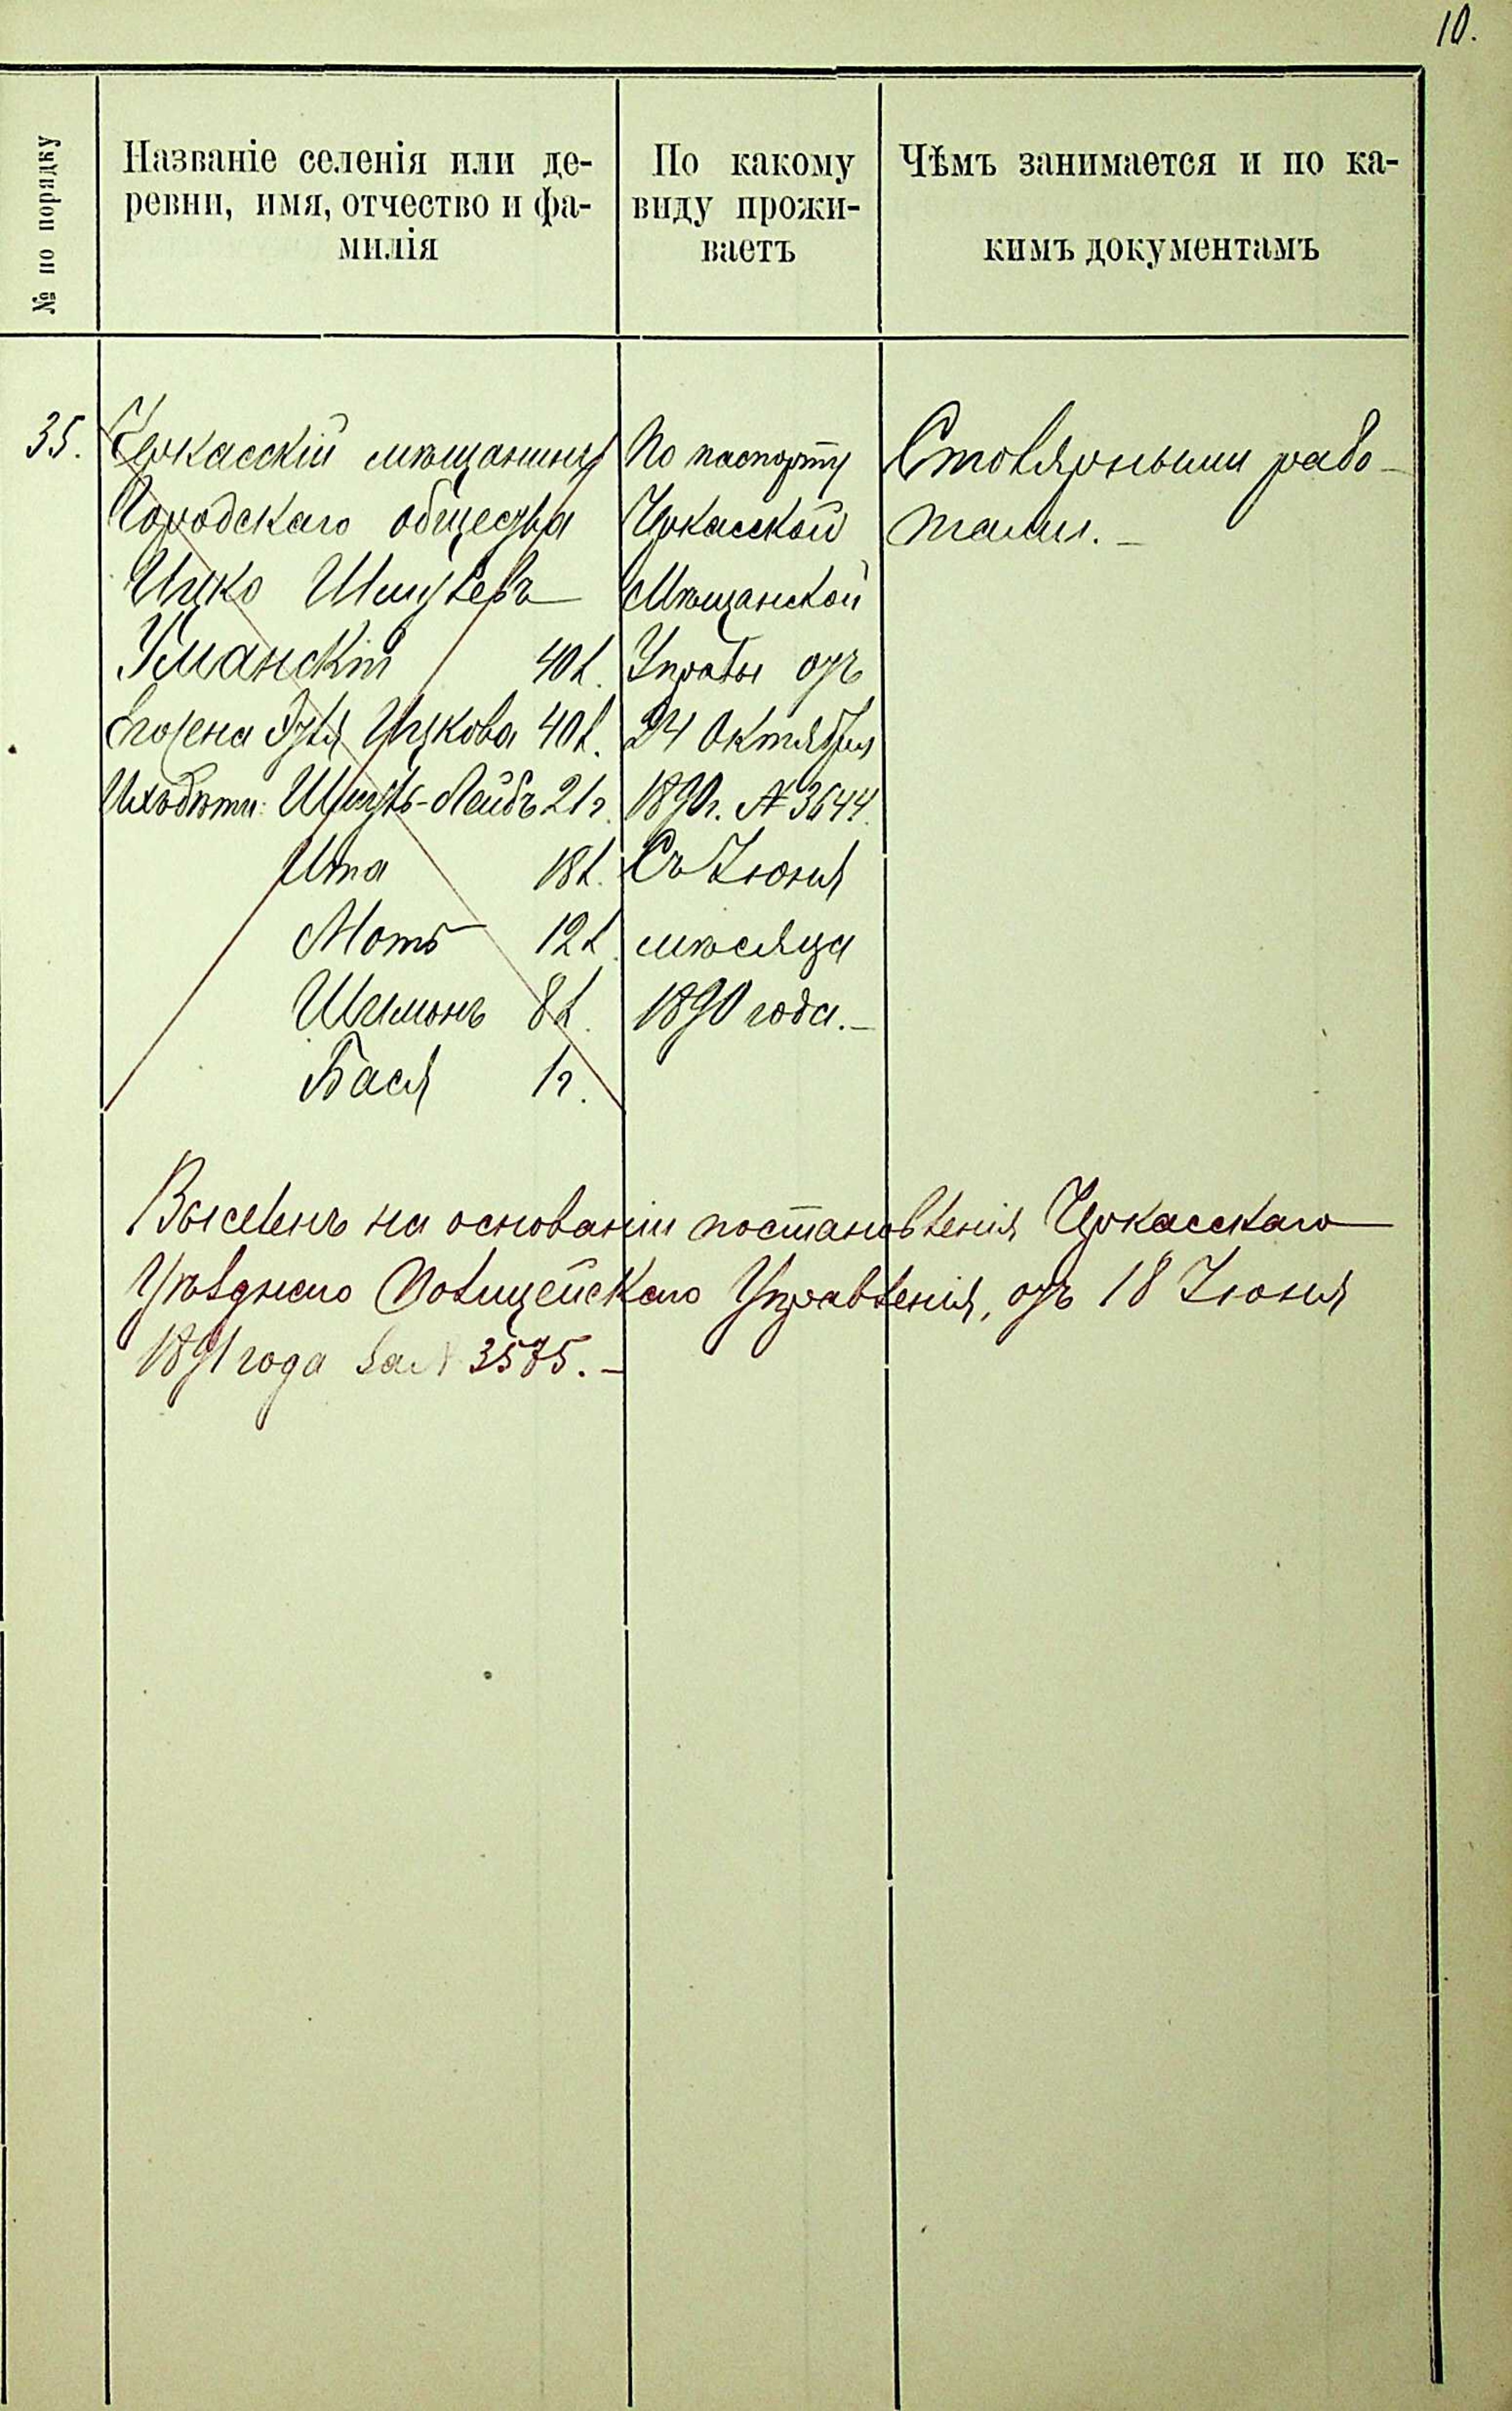 10.
№ по порядку
Названіе селенія или де-
ревни, имя, отчество и фа-
милія
По какому
виду прожи-
ваетъ
Чѣмъ занимается и по ка-
кимъ документамъ
35.
Черкасскій мѣщанинъ
Городскаго общества
Ицко Шмулевъ
Уманскій 40 л.
Его жена Эстя Ицкова 40 л.
Ихъ дѣти: Шмуль-Лейбъ 21 г.
Ита 18 л.
Мота 12 л.
Шимонъ 8 л.
Бася 1 г.
По паспорту
Черкасской
Мѣщанской
Управы отъ
24 Октября
1890 г. № 3644.
Съ Іюня
мѣсяца
1890 года.—
Столярными рабо-
тами.—
Выселенъ на основаніи постановленія Черкасскаго
Уѣзднаго Полицейскаго Управленія, отъ 18 Іюня
1891 года за № 3575.—